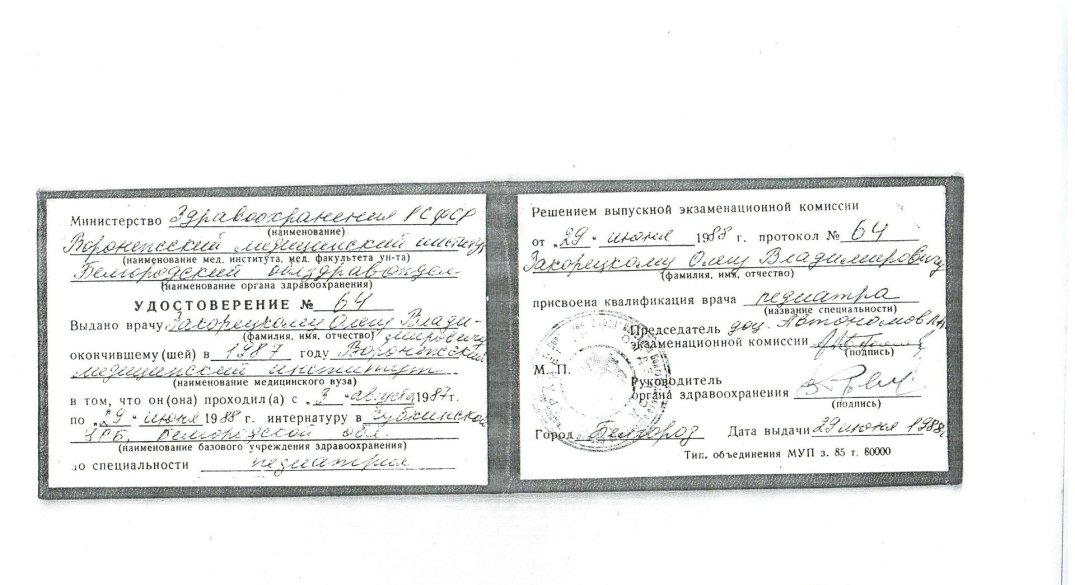 Министерство Здравоохранения РСФСР
(наименование)
Воронежский медицинский институт
(наименование мед. института, мед. факультета ун-та)
Белгородский облздравотдел
(наименование органа здравоохранения)
УДОСТОВЕРЕНИЕ № 64
Выдано врачу Закорецкому Олегу Влади-
(фамилия, имя, отчество) мировичу
окончившему (шей) в 1987 году Воронежский
медицинский институт
(наименование медицинского вуза)
в том, что он (она) проходил(а) с „3" августа 1987г.
по „29" июня 1988 г. интернатуру в Губкинской
ЦРБ, Белгородской обл.
(наименование базового учреждения здравоохранения)
по специальности педиатрия
Решением выпускной экзаменационной комиссии
от „29" июня 1988 г. протокол № 64
Закорецкому Олегу Владимировичу
(фамилия, имя, отчество)
присвоена квалификация врача педиатра
(название специальности)
Председатель доц. Автономов
экзаменационной комиссии
(подпись)
М. П.
Руководитель
органа здравоохранения
(подпись)
Город Белгород Дата выдачи 29 июня 1988г
Тип. объединения МУП з. 85 т. 80000